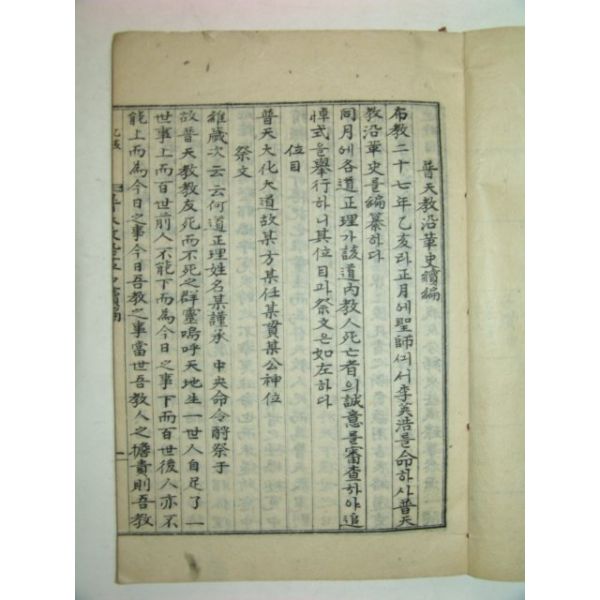 普天教沿革史續編
布教二十七年乙亥라正月에聖師셔서李英浩를命하사普天
教沿革史를編纂하다
同月에各道正理가該道內教人死亡者의誠意를審查하야追
悼式을舉行하니其位目과祭文은如左하다
位目
普天大化大道故某方某任某貫某公神位
祭文
維歲次云云何道正理姓名某謹承 中央命令酹祭于
故普天教教友死而不死之群靈嗚呼天地生一世人自足了一
世事上而百世前人不能下而為今日之事下而百世後人亦不
能上而為今日之事今日吾教之事當世吾教人之擔責則吾教